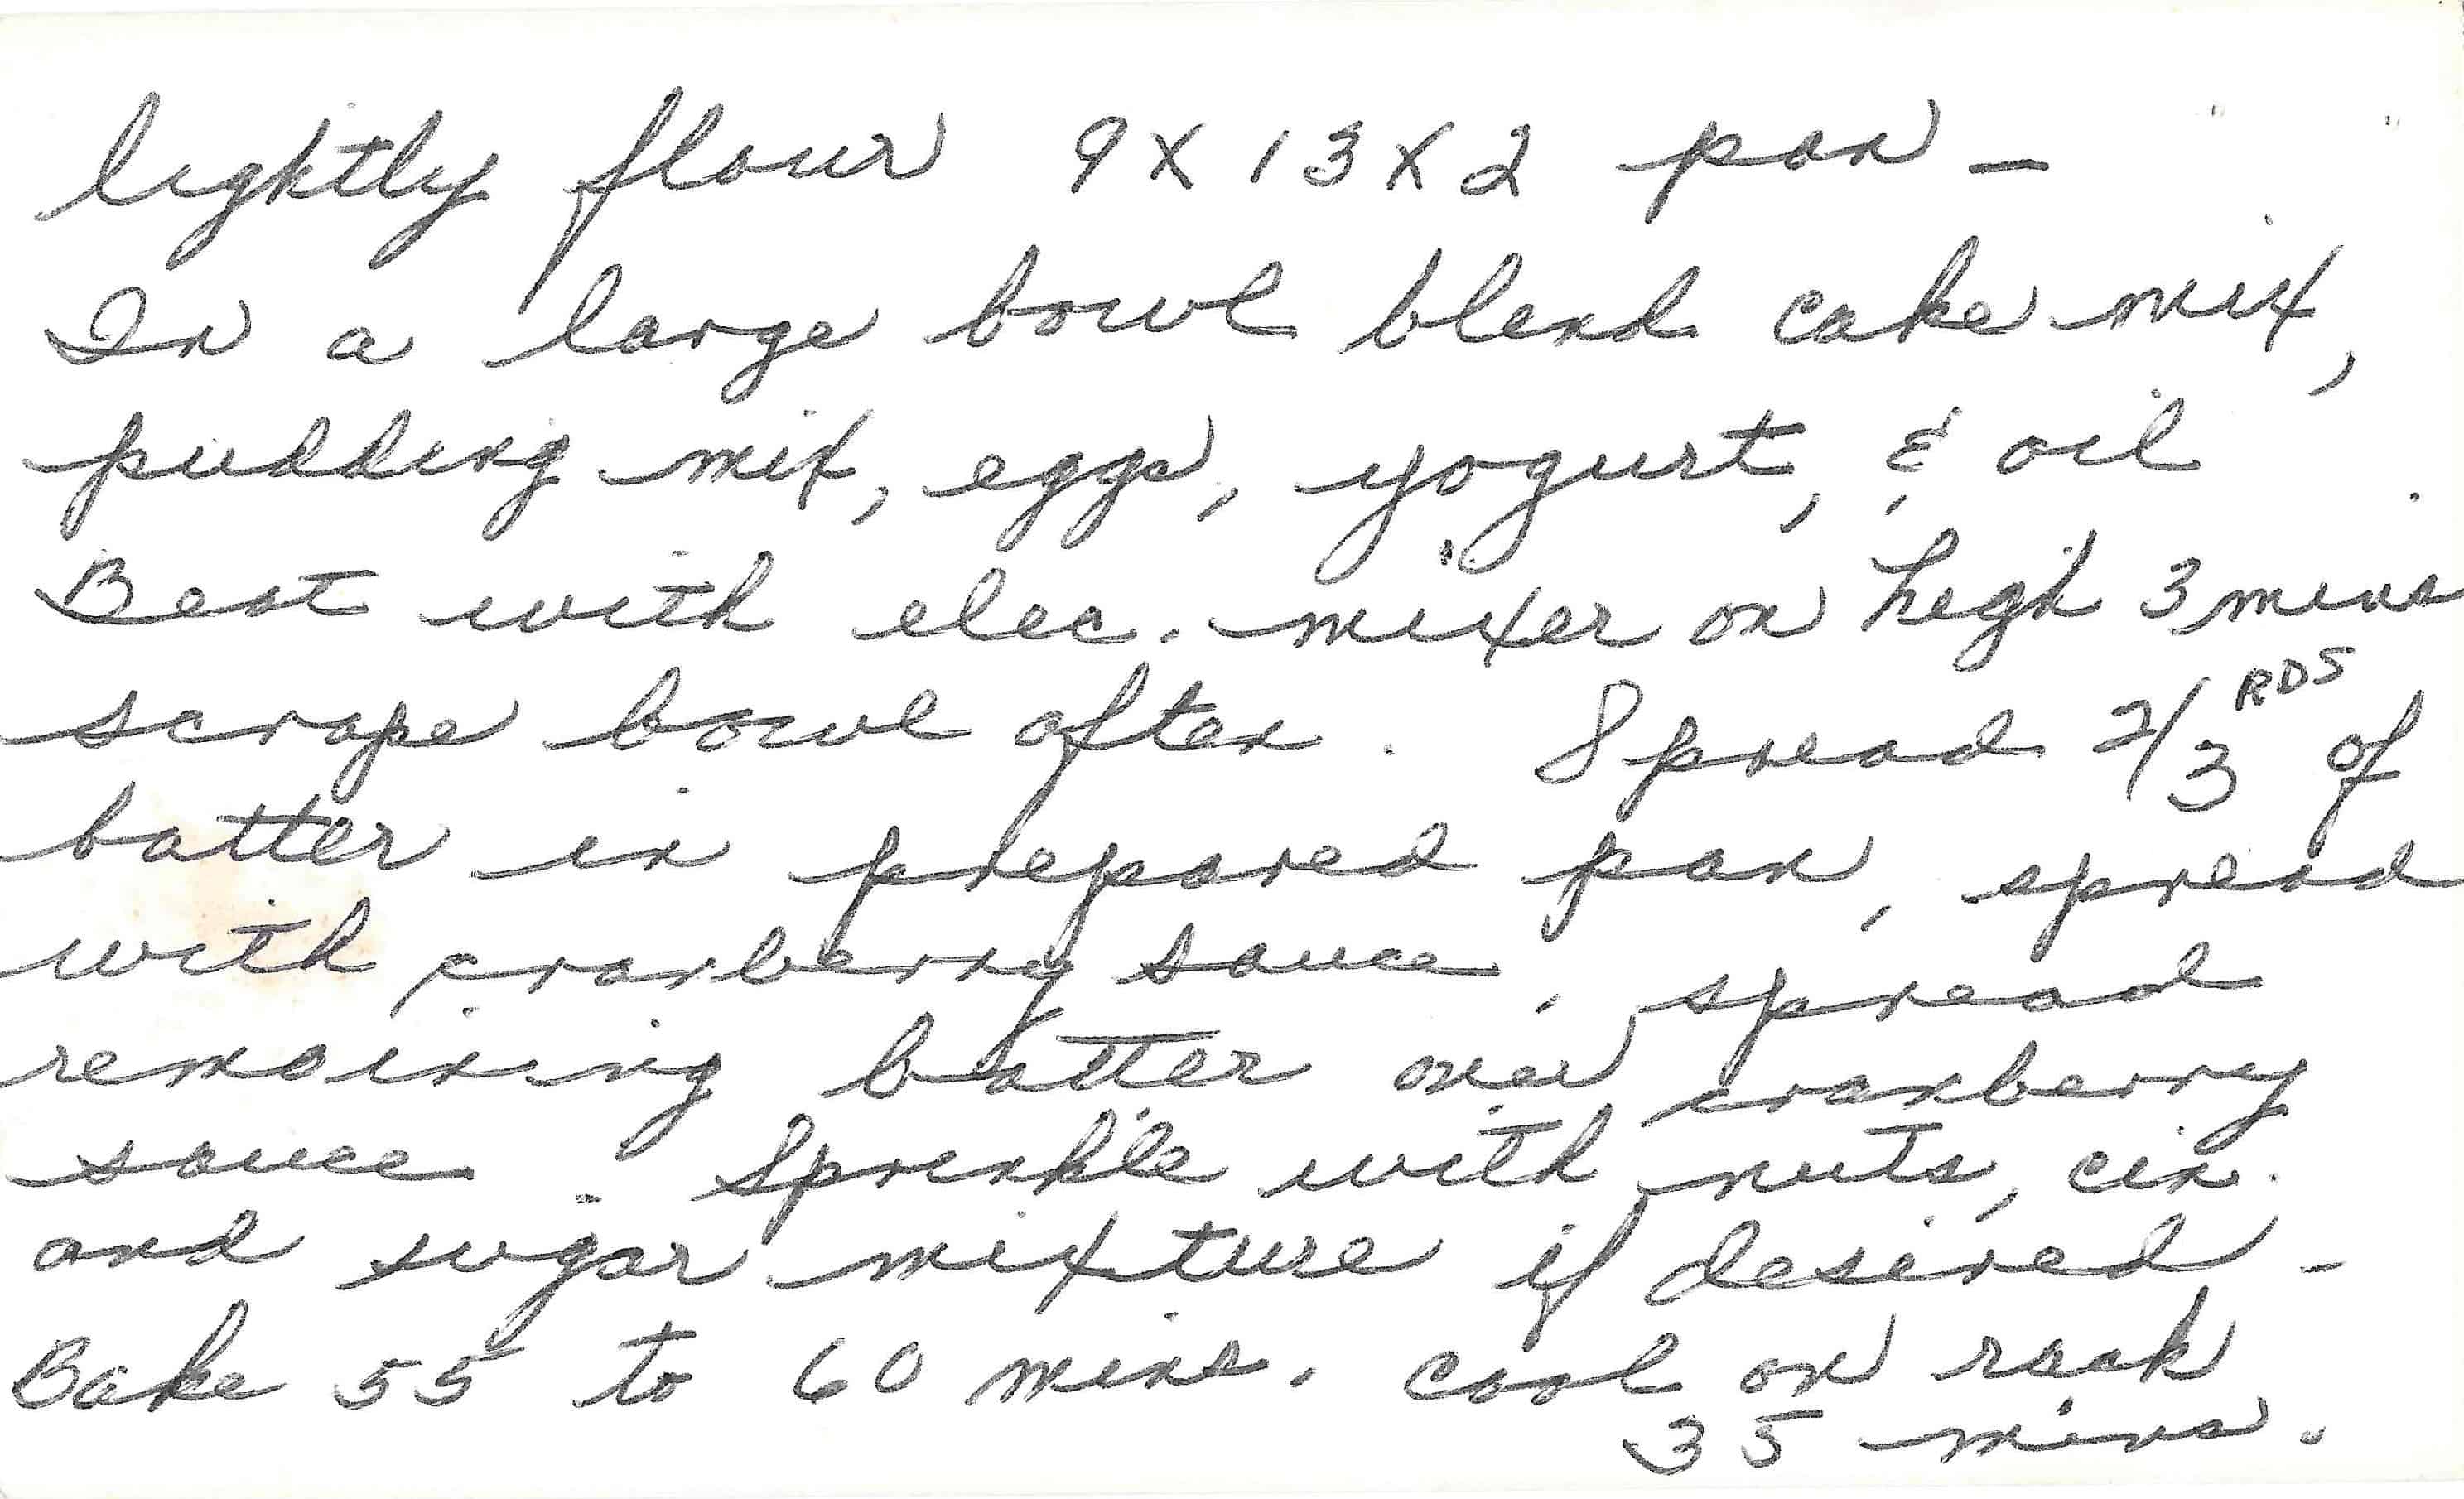 lightly flour 9 X 13 X 2 pan -
In a large bowl blend cake mix,
pudding mix, eggs, yogurt, & oil.
Beat with elec. mixer on high 3 mins
scrape bowl often. Spread 2/3 RDS of
batter in prepared pan, spread
with cranberry sauce, spread
remaining batter over cranberry
sauce. Sprinkle with nuts, cin.
and sugar mixture if desired -
Bake 55 to 60 mins. cool on rack
35 mins.